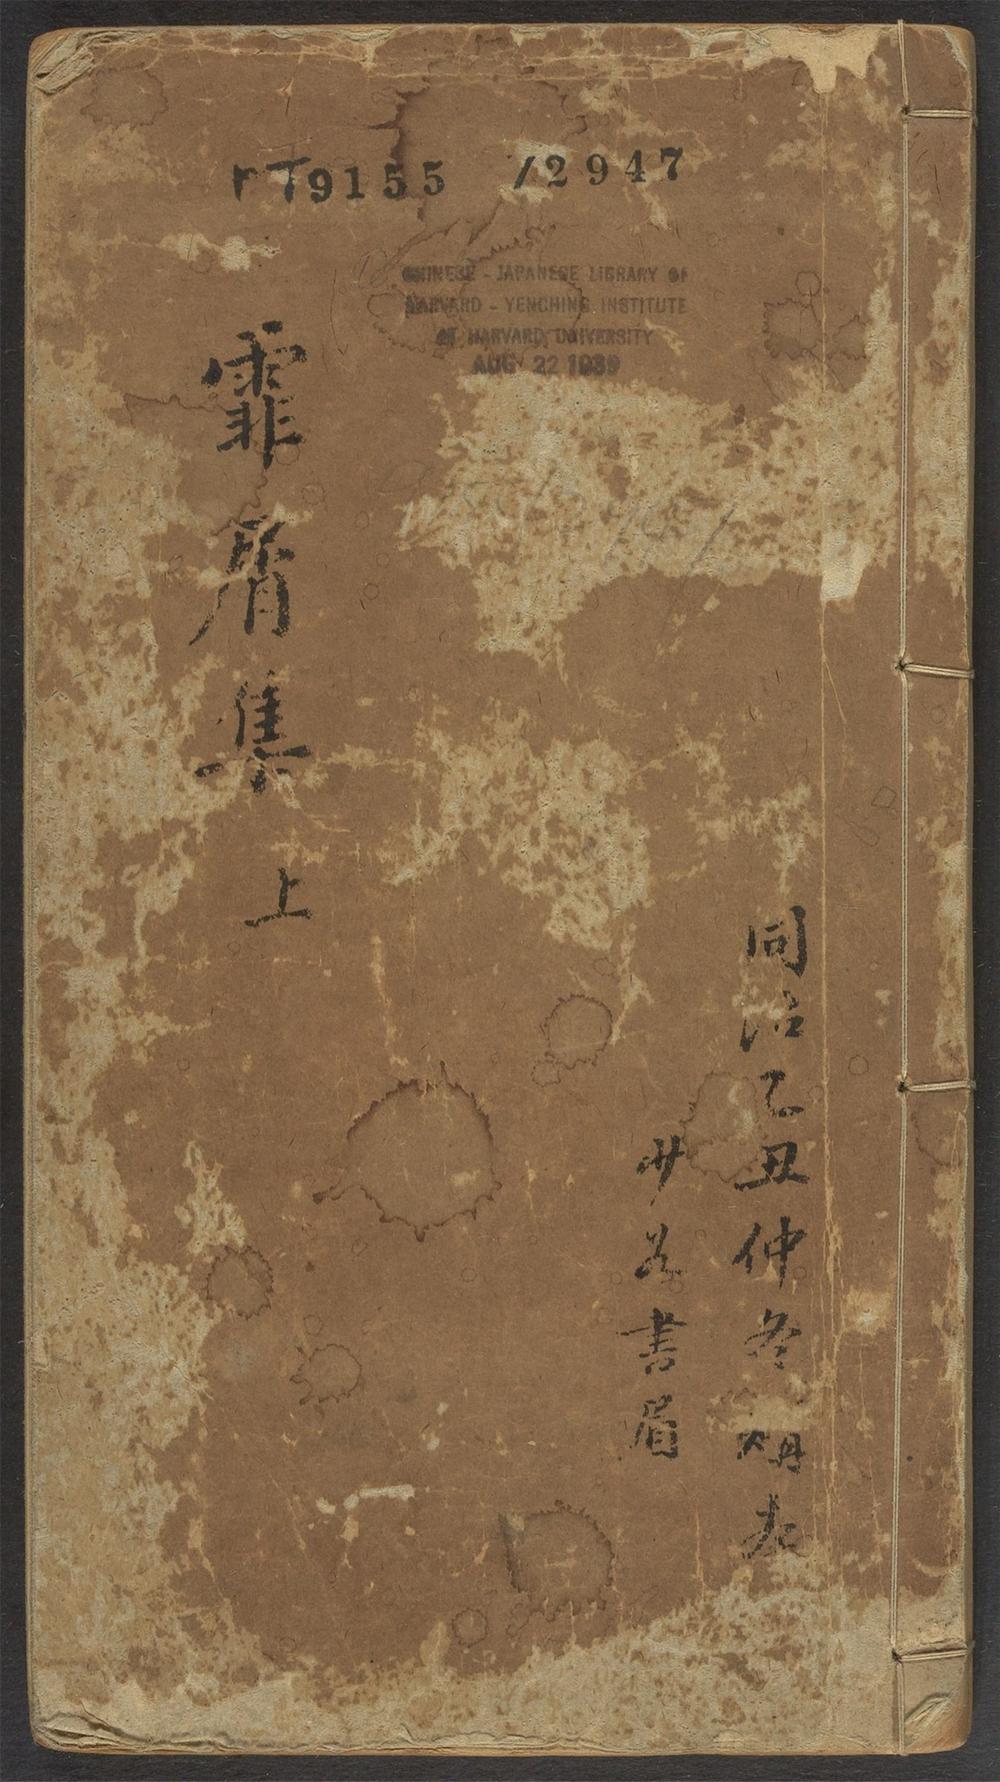 T9155 /2947
CHINESE - JAPANESE LIBRARY OF
HARVARD - YENCHING INSTITUTE
AT HARVARD UNIVERSITY
AUG 22 1939
霏屑集 上
同治乙丑仲冬
書眉